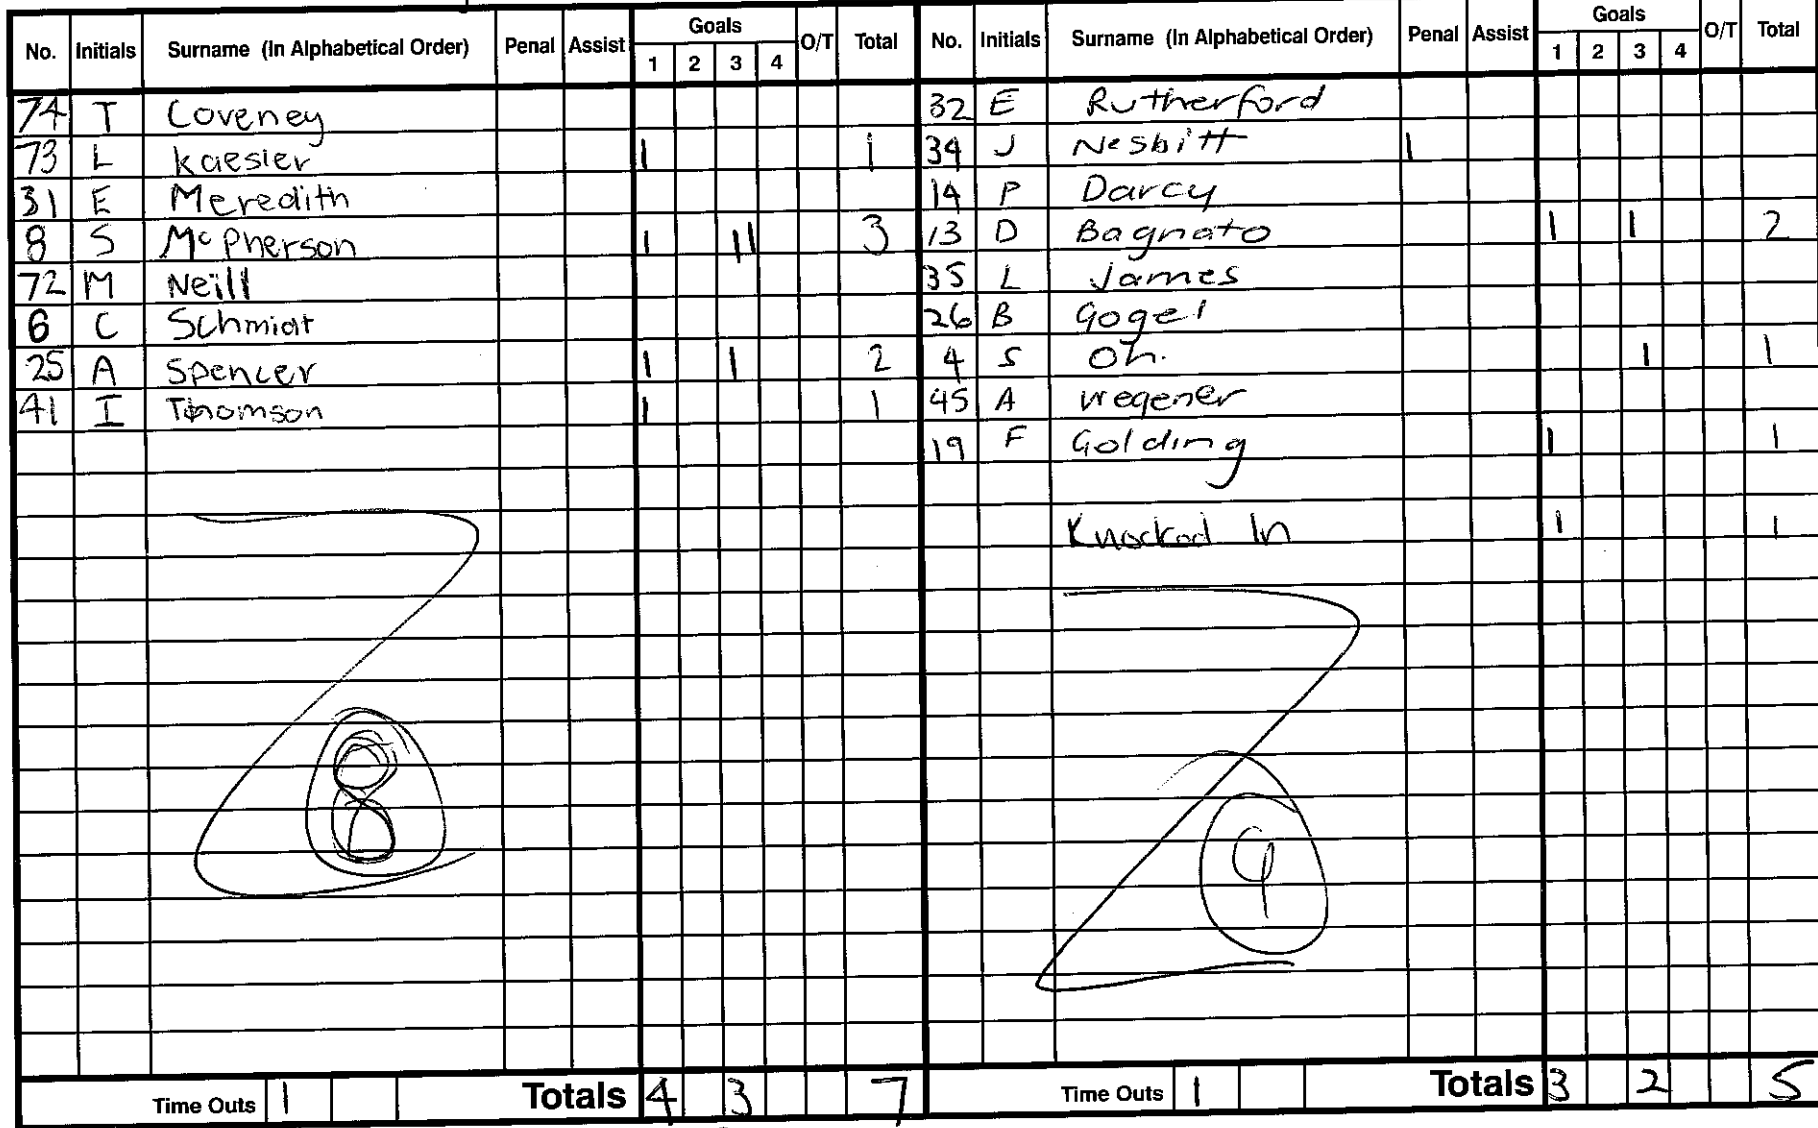 No. Initials Surname (In Alphabetical Order) Penal Assist Goals 1 2 3 4 O/T Total
74 T Coveney
73 L Kaesler 1 1
31 E Meredith
8 S McPherson 1 11 3
72 M Neill
6 C Schmidt
25 A Spencer 1 1 2
41 I Thomson 1 1
8
Time Outs 1 Totals 4 3 7
No. Initials Surname (In Alphabetical Order) Penal Assist Goals 1 2 3 4 O/T Total
32 E Rutherford
34 J Nesbitt 1
14 P Darcy
13 D Bagnato 1 1 2
35 L James
26 B Gogel
4 S Oh. 1 1
45 A Wegener
19 F Golding 1 1
Knocked In 1 1
9
Time Outs 1 Totals 3 2 5